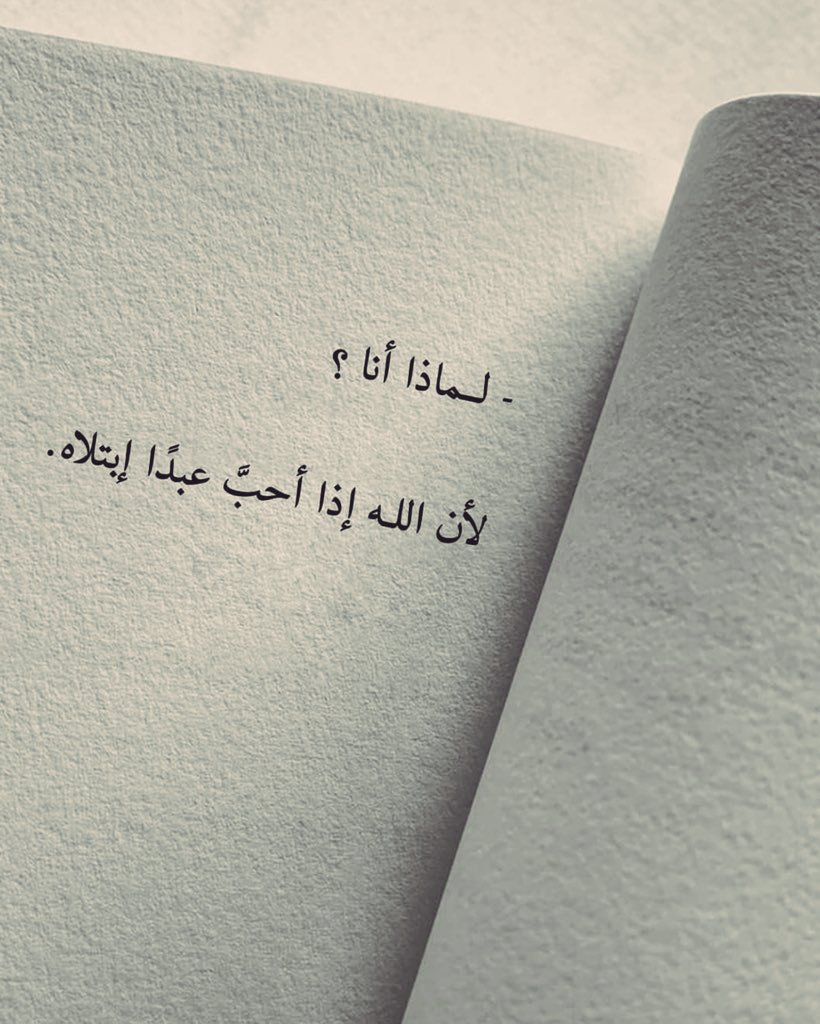 - لـماذا أنا ؟
لأن اللـه إذا أحبَّ عبدًا إبتلاه.